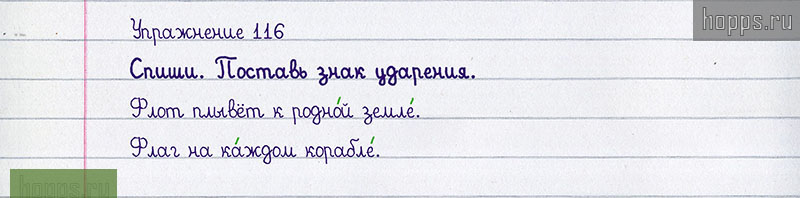 hopps.ru
Упражнение 116
Спиши. Поставь знак ударения.
Флот плывёт к родно́й земле́.
Флаг на ка́ждом корабле́.
hopps.ru